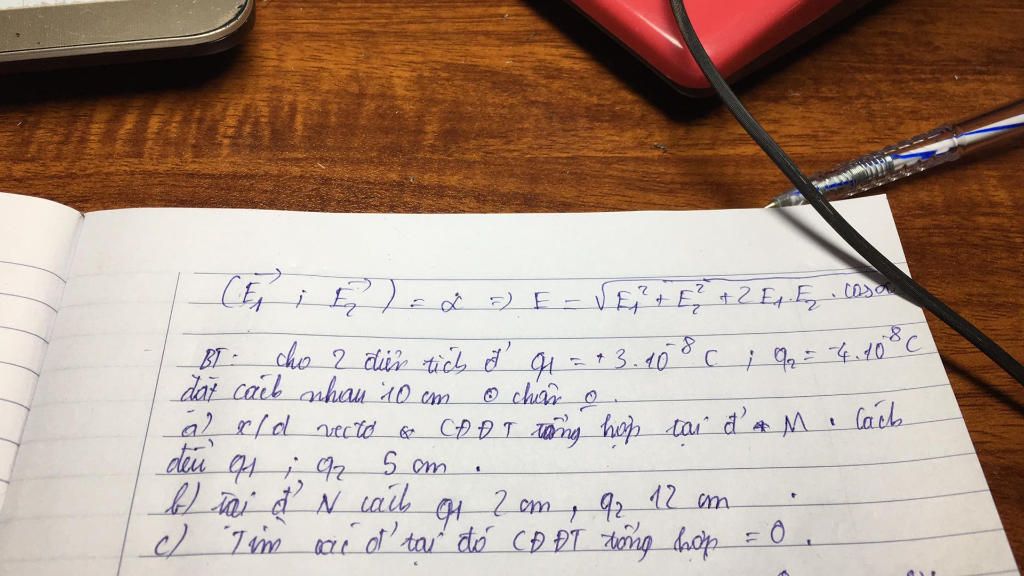 (E₁→ ; E₂→) = α => E = √E₁² + E₂² + 2E₁.E₂ . cosα
BT: cho 2 điện tích đ' q1 = +3.10⁻⁸ C ; q2 = -4.10⁻⁸ C
đặt cách nhau 10 cm chân 0.
a) x/đ vectơ CĐĐT tổng hợp tại đ' M. Cách
đều q1 ; q2 5 cm.
b) tại đ' N cách q1 2 cm, q2 12 cm.
c) Tìm các đ' tại đó CĐĐT tổng hợp = 0.